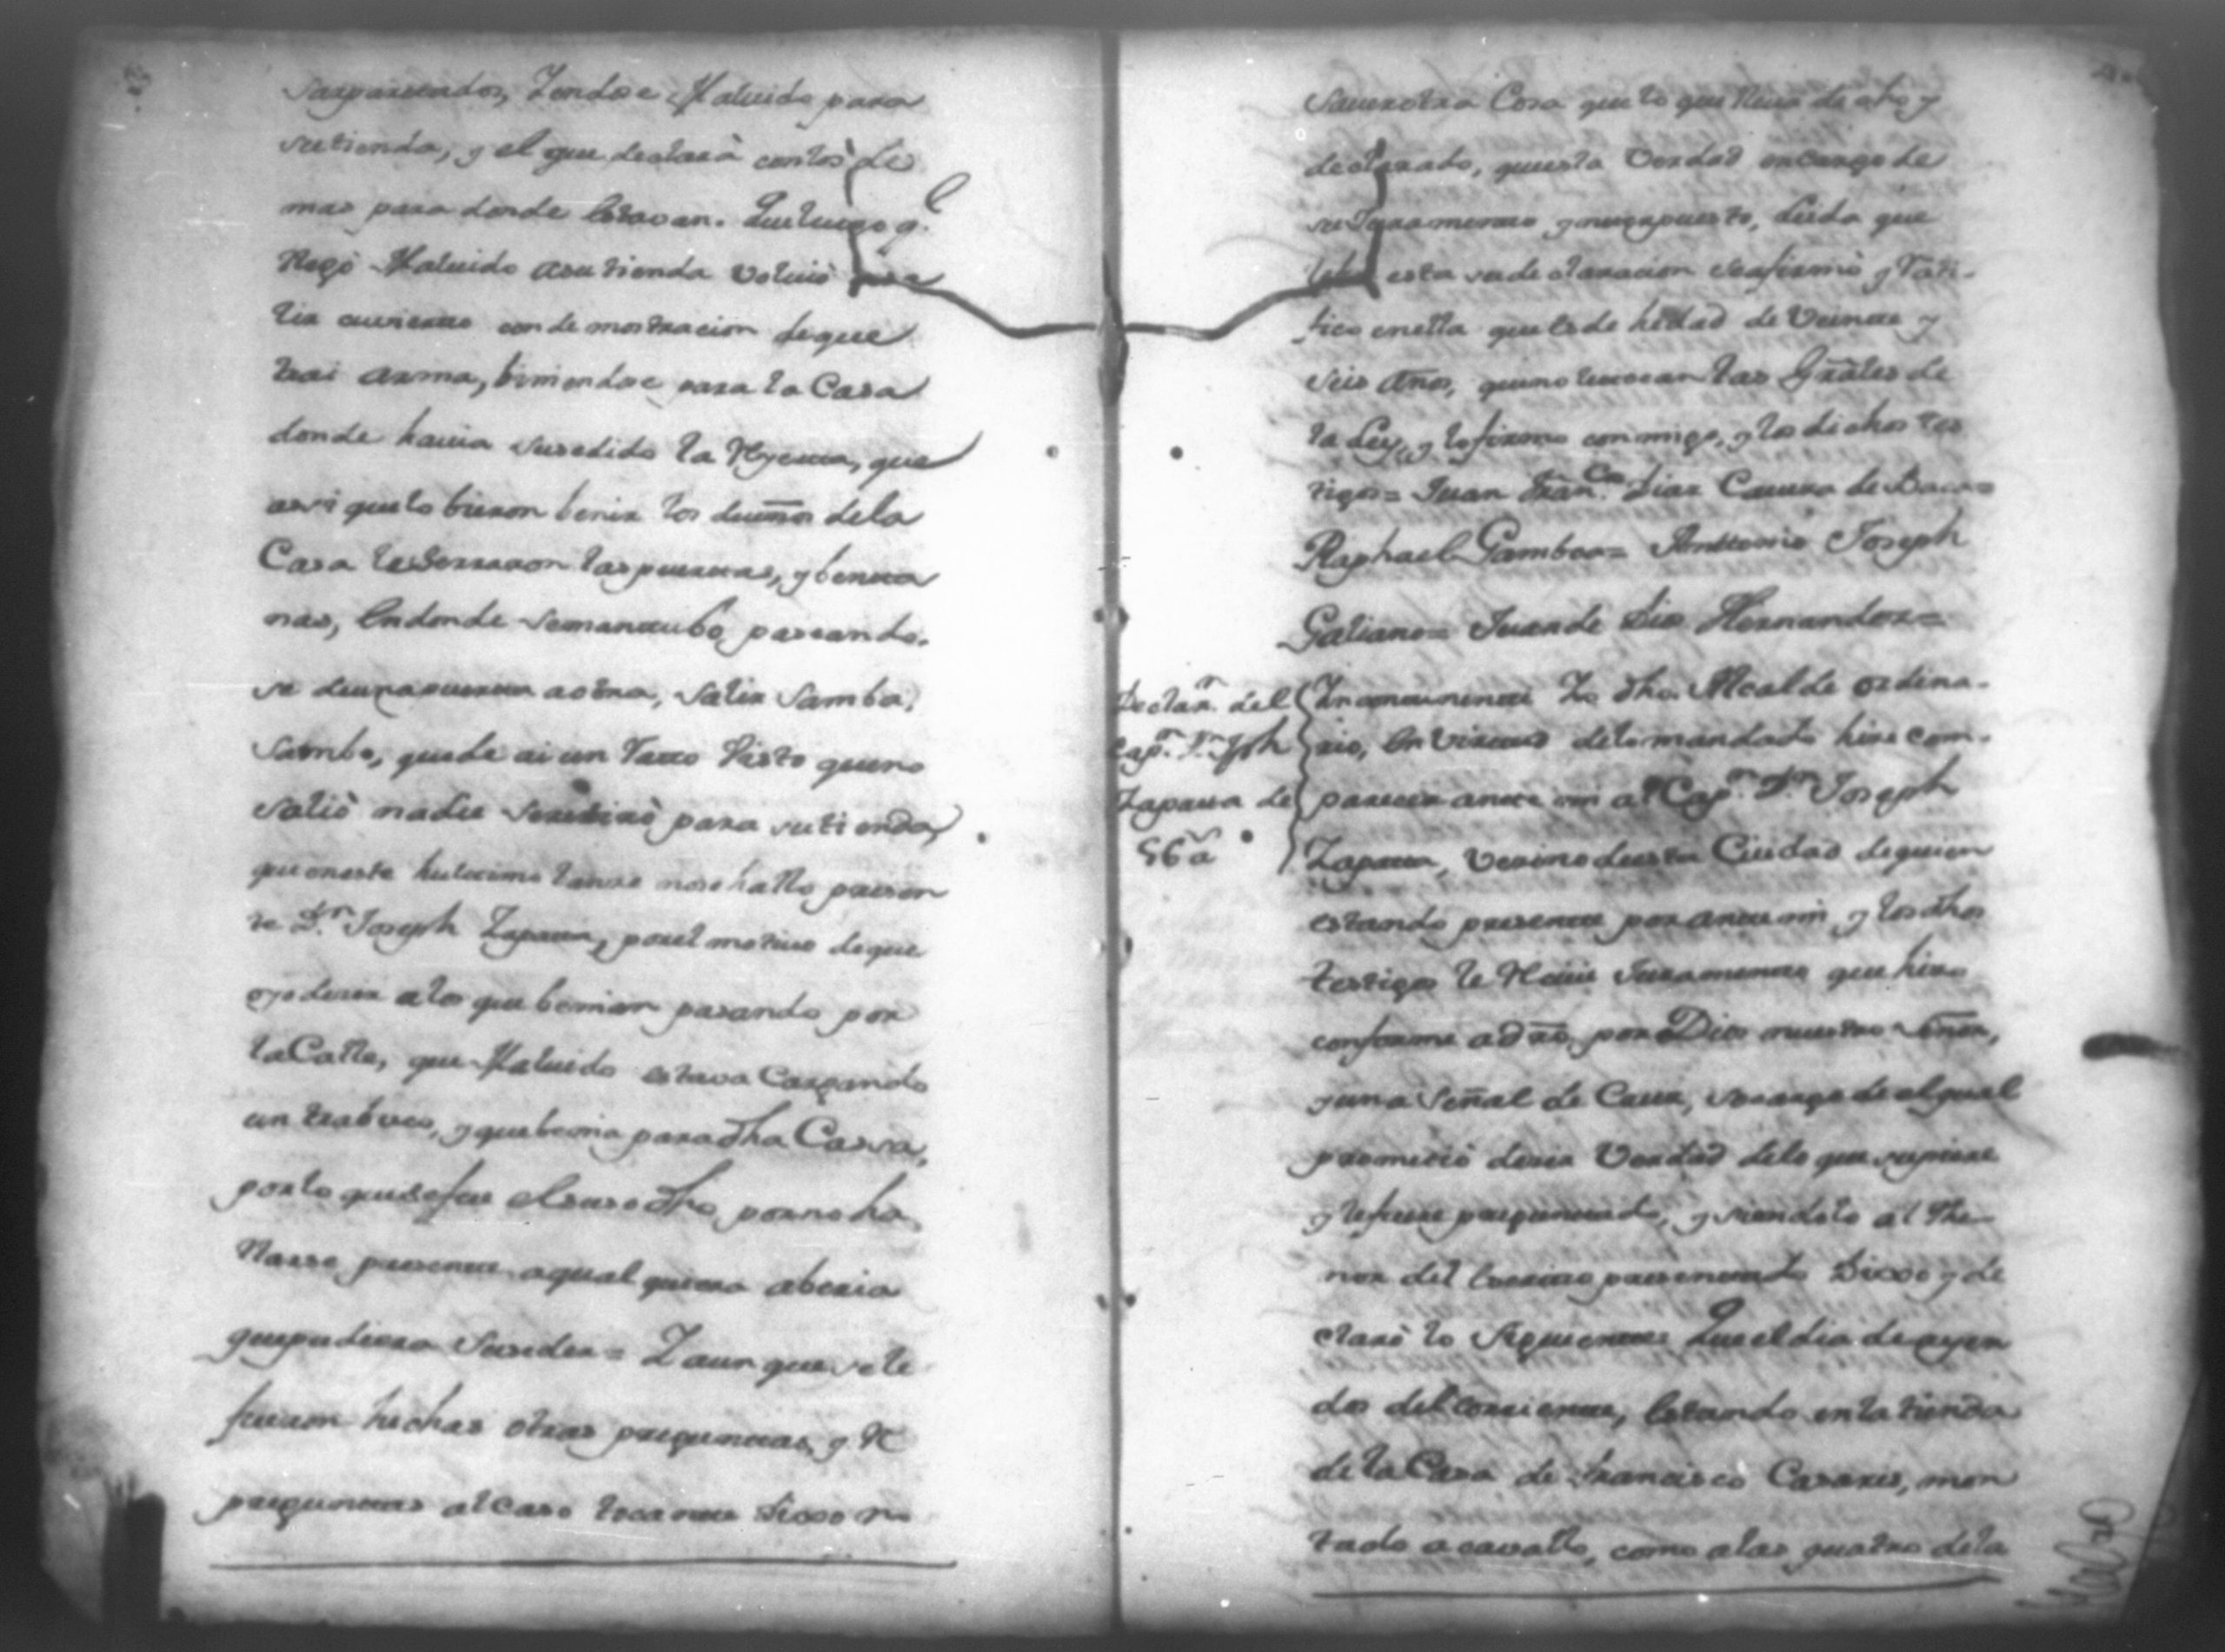 separados, Yendose Halvido para
su tienda, y el que declara con los de
mas para donde estavan. Que luego q.e
llegò Halvido a su tienda volviò
lir cuvierto con demostracion de que
trai arma, biniendose para la Casa
donde havia susedido la Reyerta, que
assi que lo bieron benir los dueños de la
Casa le Serraron las puertas, y benta
nas, en donde se mantubo paseando
se de una puerta a otra, Salir Samba,
Sambo, que de ai un Rato Visto que no
saliò nadie se retirò para su tienda,
que en este hultimo lanse no se hallo presen
te D.n Joseph Zapata, por el motivo de que
oyo desir a los que benian pasando por
la Calle, que Halvido estava Cargando
un trabuco, y que benia para dha Cassa,
por lo que se fue el suso dho, por no ha
llarse presente a qual quiera aberia
que pudiera Suseder = Y aun que se le
fueron hechas otras preguntas, y Re
preguntas al caso tocantes Dixo no
saver otra Cosa que lo que lleva dicho y
declarado, que es la Verdad en cargo de
su Juramento que lleva puesto, Leida que
esta su declaracion se afirmò y Rati-
fico en ella que es de hedad de Veinte y
seis años, que no le tocan las Grales de
la Ley, y lo firmo conmigo, y los dichos tes
tigos = Juan Fran.co Dias Caveza de Baca =
Raphael Gamboa = Anttonio Joseph
Galiano = Juan de Dios Hernandez =
Declaz.n del
Cap.n D.n Jph
Zapata de
56 a
Incontinenti Yo dho Alcalde ordina-
rio, en Virtud de lo mandado hise com-
pareser ante mi al Cap.n D.n Joseph
Zapata, Vesino de esta Ciudad de quien
estando presente por ante mi y los dhos
testigos le Resivi Juramento que hizo
conforme a dro, por Dios nuestro Señor,
y una Señal de Cruz, so cargo de el qual
prometiò desir Verdad de lo que supiere
y le fuere preguntado, y siendolo al The-
nor del escrito presentado Dixo y de
clarò lo Siguiente Que el dia de ayer
dos del corriente, estando en la tienda
de la Casa de Francisco Casares, mon
tado a cavallo, como a las quatro de la